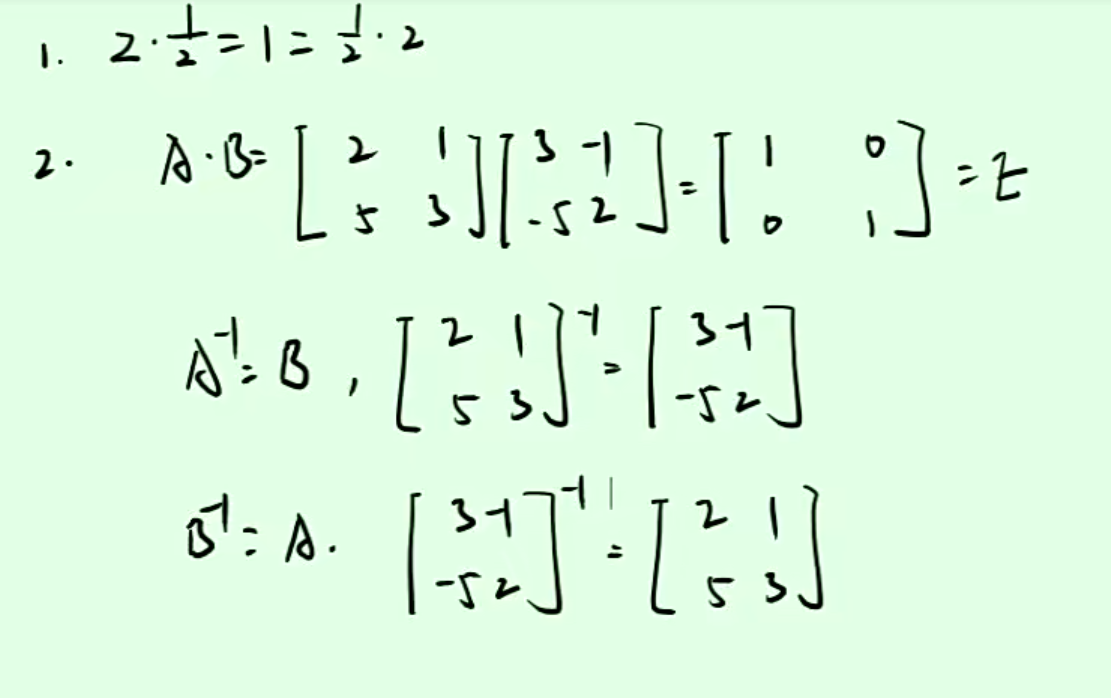 1. 2·1/2=1=1/2·2
2. A·B=[2 1; 5 3][3 -1; -5 2]=[1 0; 0 1]=E
A⁻¹=B, [2 1; 5 3]⁻¹=[3 -1; -5 2]
B⁻¹=A. [3 -1; -5 2]⁻¹=[2 1; 5 3]